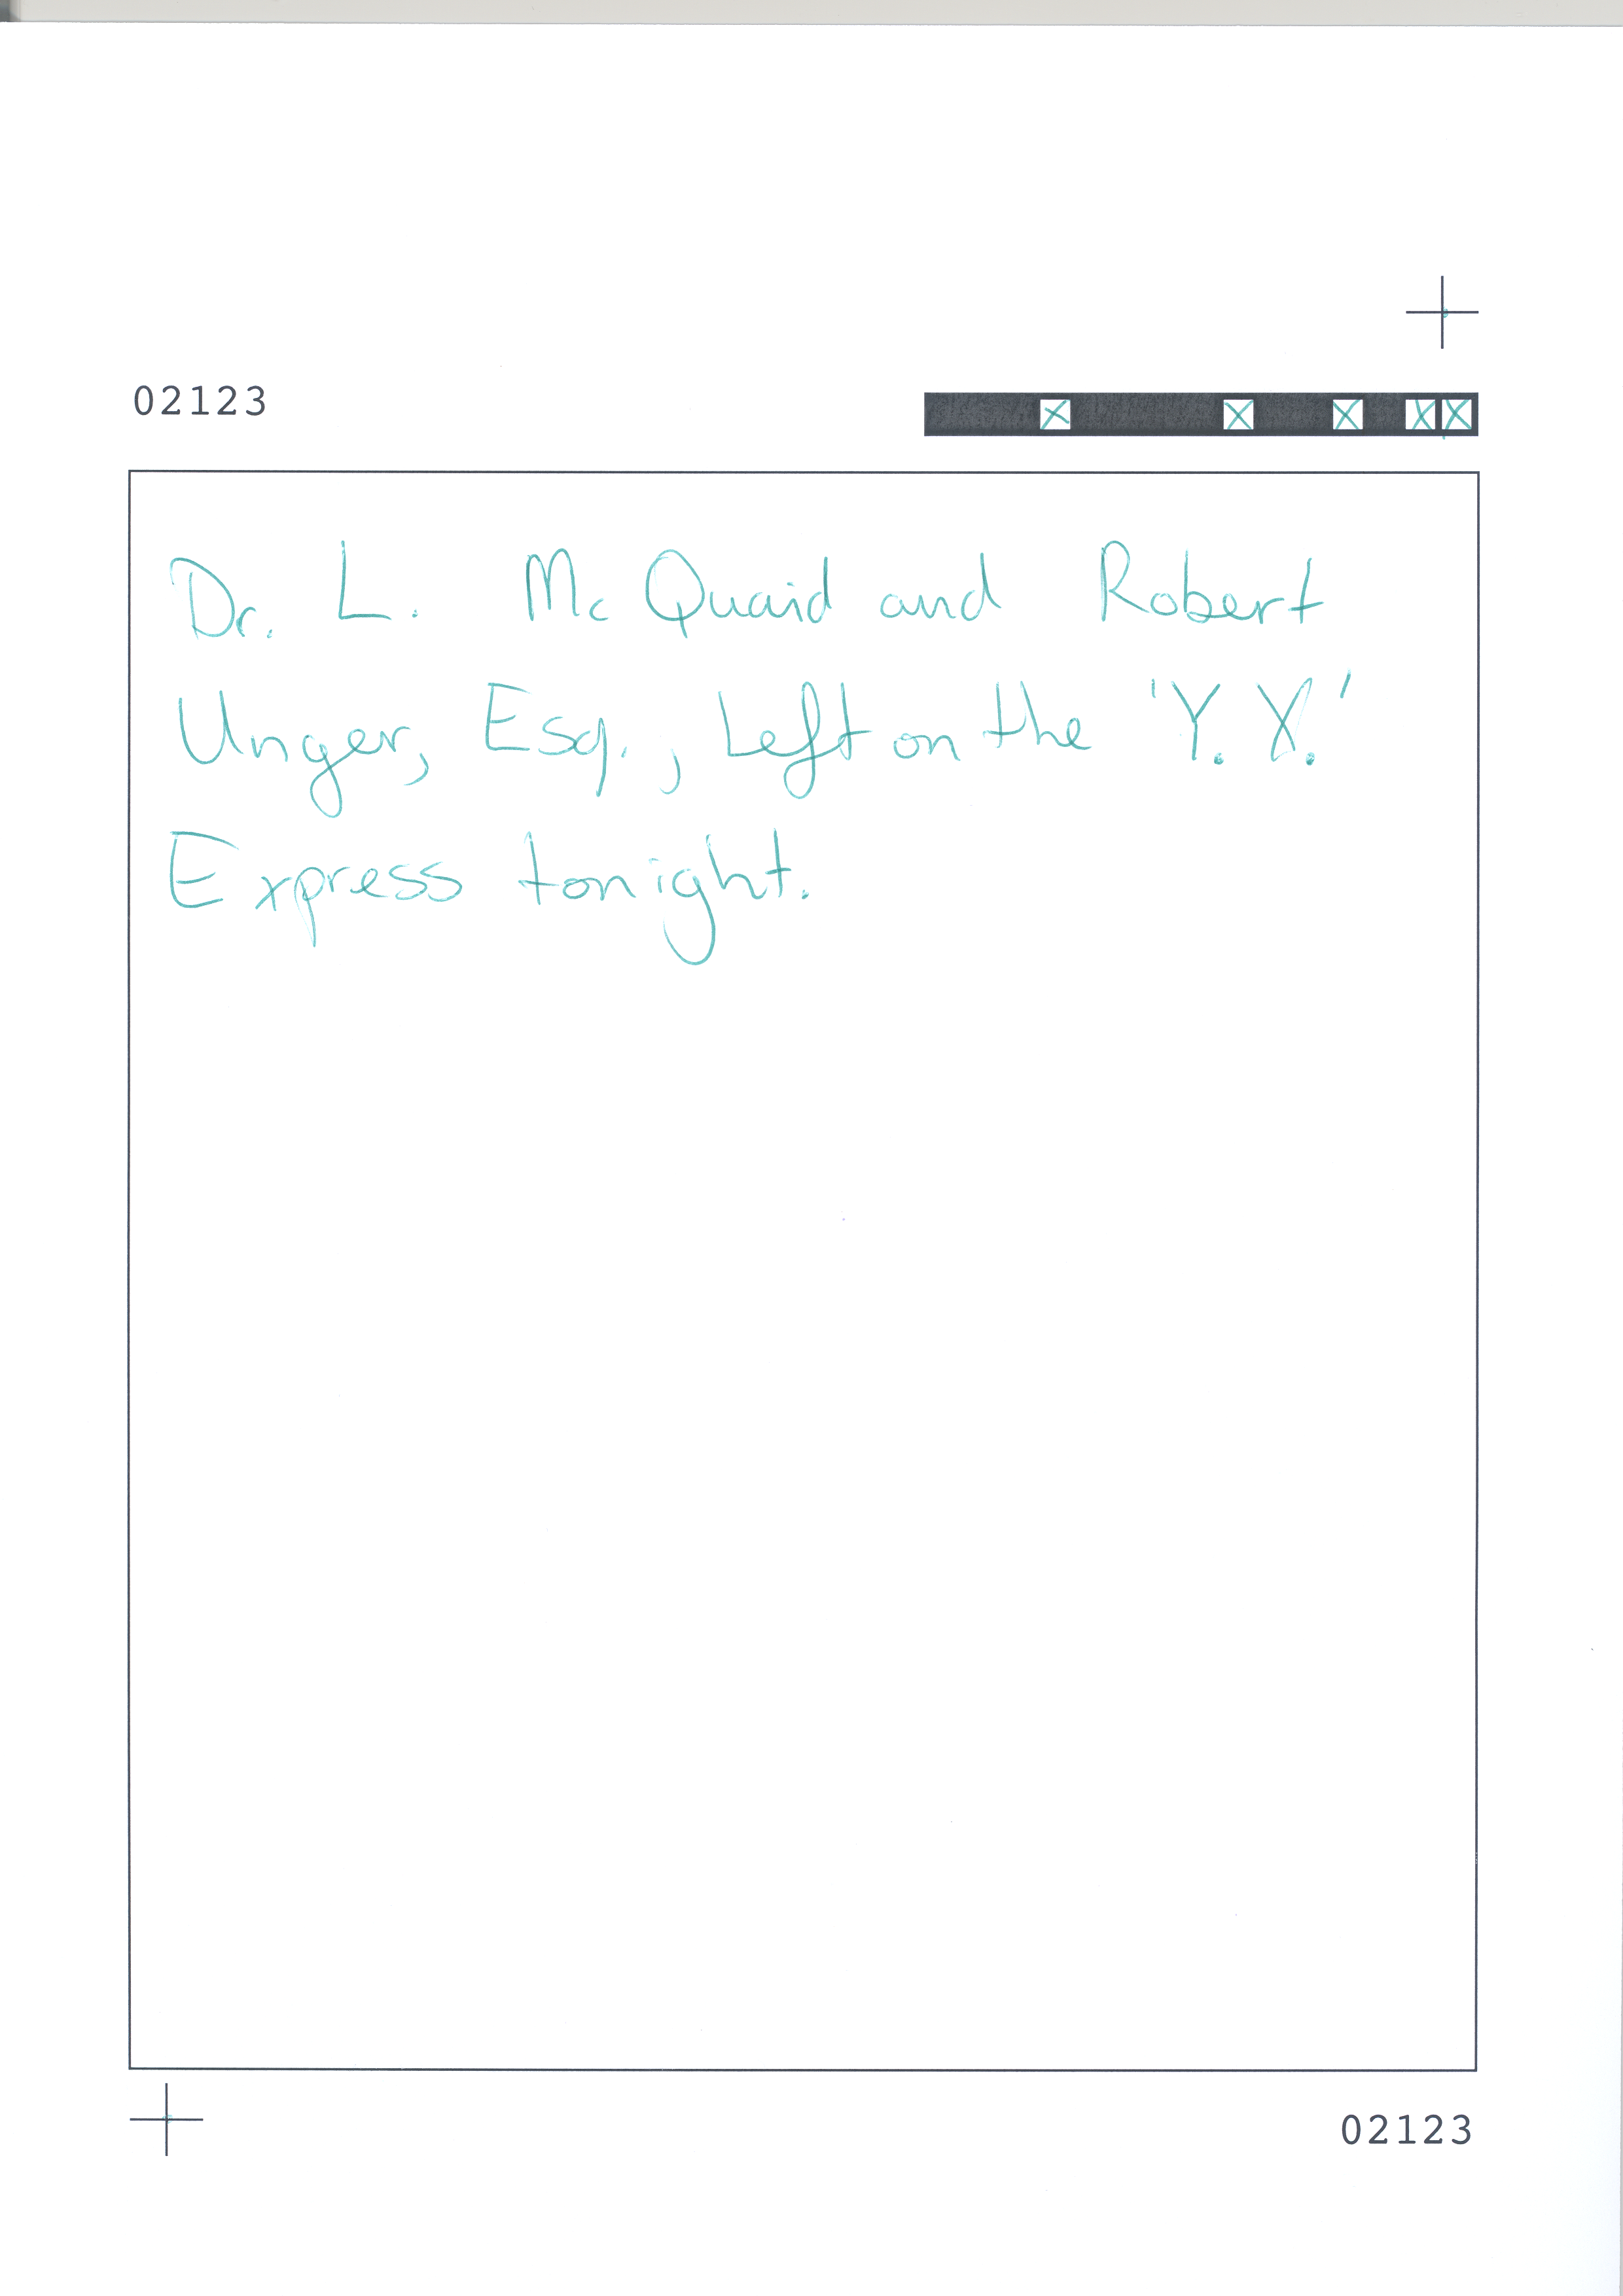 02123
Dr. L. McQuaid and Robert
Unger, Esq., Left on the 'Y.X.'
Express tonight.
02123